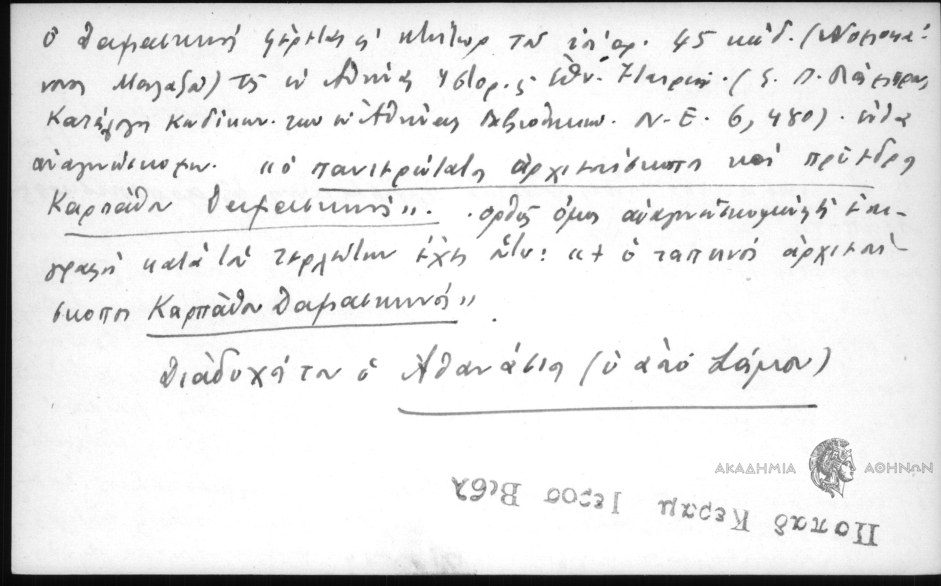 ὁ Δαμασκηνὸς φέρεται κ' κτήτωρ τοῦ ὑπ' ἀρ. 45 κώδ. (Νομοκά-
νονος Μαλαξοῦ) τῆς ἐν Ἀθήναις Ἱστορ. κ Ἐθν. Ἑταιρείας (Σ. Π. Λάμπρος
Κατάλογος Κωδίκων τῶν ἐν Ἀθήναις Βιβλιοθηκῶν. Ν. Ε. 6, 480).
ἀναγινώσκομεν "ὁ πανιερώτατος ἀρχιεπίσκοπος καὶ πρόεδρος
Καρπάθου Δαμασκηνός". ὀρθῶς ὅμως ἀναγινωσκομένη ἡ ὑπο-
γραφὴ κατὰ τὸν ἔχει οὕτω: "+ ὁ ταπεινὸς ἀρχιεπί-
σκοπος Καρπάθου Δαμασκηνός".
Διάδοχός του ὁ Ἀθανάσιος (ὁ ἀπὸ Σάμου)
ΑΚΑΔΗΜΙΑ ΑΘΗΝΩΝ
Παπαδ Κεραμ Ιεροσ Βιβλ